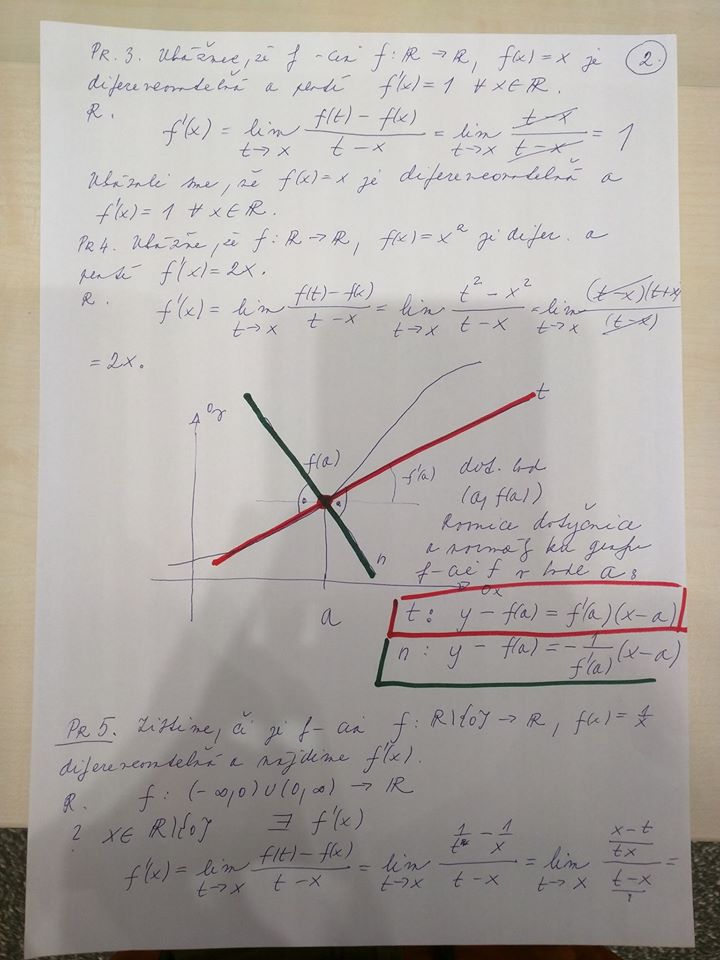 PR. 3. Ukážnee, že f-cia f: R → R, f(x) = x je
2.
diferencovateľná a platí f'(x) = 1 ∀ x ∈ R.
R.
f'(x) = lim t→x (f(t) - f(x))/(t - x) = lim t→x (t - x)/(t - x) = 1
Ukázali sme, že f(x) = x je diferencovateľná a
f'(x) = 1 ∀ x ∈ R.
PR 4. Ukážme, že f: R → R, f(x) = x² je difer. a
platí f'(x) = 2x.
R. f'(x) = lim t→x (f(t) - f(x))/(t - x) = lim t→x (t² - x²)/(t - x) = lim t→x (t - x)(t + x)/(t - x)
= 2x.
t
f(a)
f'(a)
dot. bod
(a, f(a))
Rovnice dotyčnice
a normály ku grafu
n
f-cie f v bode a:
ox
a
t: y - f(a) = f'(a)(x - a)
n: y - f(a) = -1/f'(a) (x - a)
PR 5. Zistime, či je f-cia f: R\{0} → R, f(x) = 1/x
diferencovateľná a nájdime f'(x).
R. f: (-∞, 0) ∪ (0, ∞) → R
? x ∈ R\{0} ∃ f'(x)
f'(x) = lim t→x (f(t) - f(x))/(t - x) = lim t→x (1/t - 1/x)/(t - x) = lim t→x ((x - t)/(tx))/((t - x)/1) =